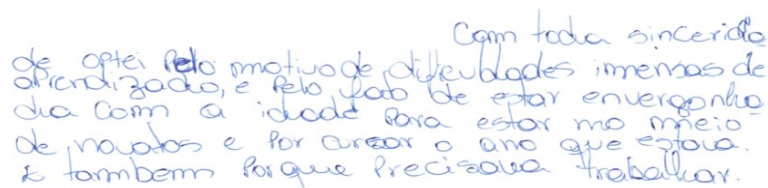 Com toda sincerida
de optei pelo motivo de dificuldades imensas de
aprendizado, e pelo fato de estar envergonha
dia com a idade para estar no meio
de novatos e por cursar o ano que estava.
E tambem porque precisava trabalhar.